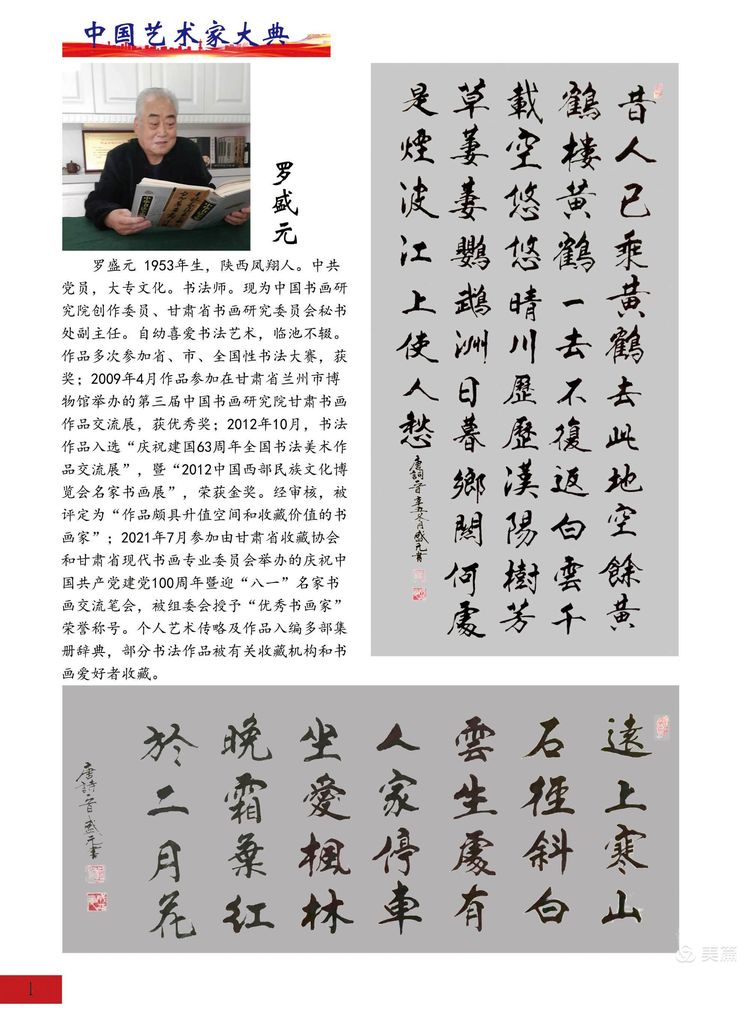 中国艺术家大典
罗盛元
罗盛元 1953年生，陕西凤翔人。中共
党员，大专文化。书法师。现为中国书画研
究院创作委员、甘肃省书画研究委员会秘书
处副主任。自幼喜爱书法艺术，临池不辍。
作品多次参加省、市、全国性书法大赛，获
奖；2009年4月作品参加在甘肃省兰州市博
物馆举办的第三届中国书画研究院甘肃书画
作品交流展，获优秀奖；2012年10月，书法
作品入选“庆祝建国63周年全国书法美术作
品交流展”，暨“2012中国西部民族文化博
览会名家书画展”，荣获金奖。经审核，被
评定为“作品颇具升值空间和收藏价值的书
画家”；2021年7月参加由甘肃省收藏协会
和甘肃省现代书画专业委员会举办的庆祝中
国共产党建党100周年暨迎“八一”名家书
画交流笔会，被组委会授予“优秀书画家”
荣誉称号。个人艺术传略及作品入编多部集
册辞典，部分书法作品被有关收藏机构和书
画爱好者收藏。
昔人已乘黄鶴去此地空餘黄
鶴楼黄鶴一去不復返白雲千
載空悠悠晴川歷歷漢陽樹芳
草萋萋鸚鵡洲日暮鄉関何處
是煙波江上使人愁
遠上寒山
石徑斜白
雲生處有
人家停車
坐愛楓林
晚霜葉红
於二月花
唐詩一首盛元書
1
美篇